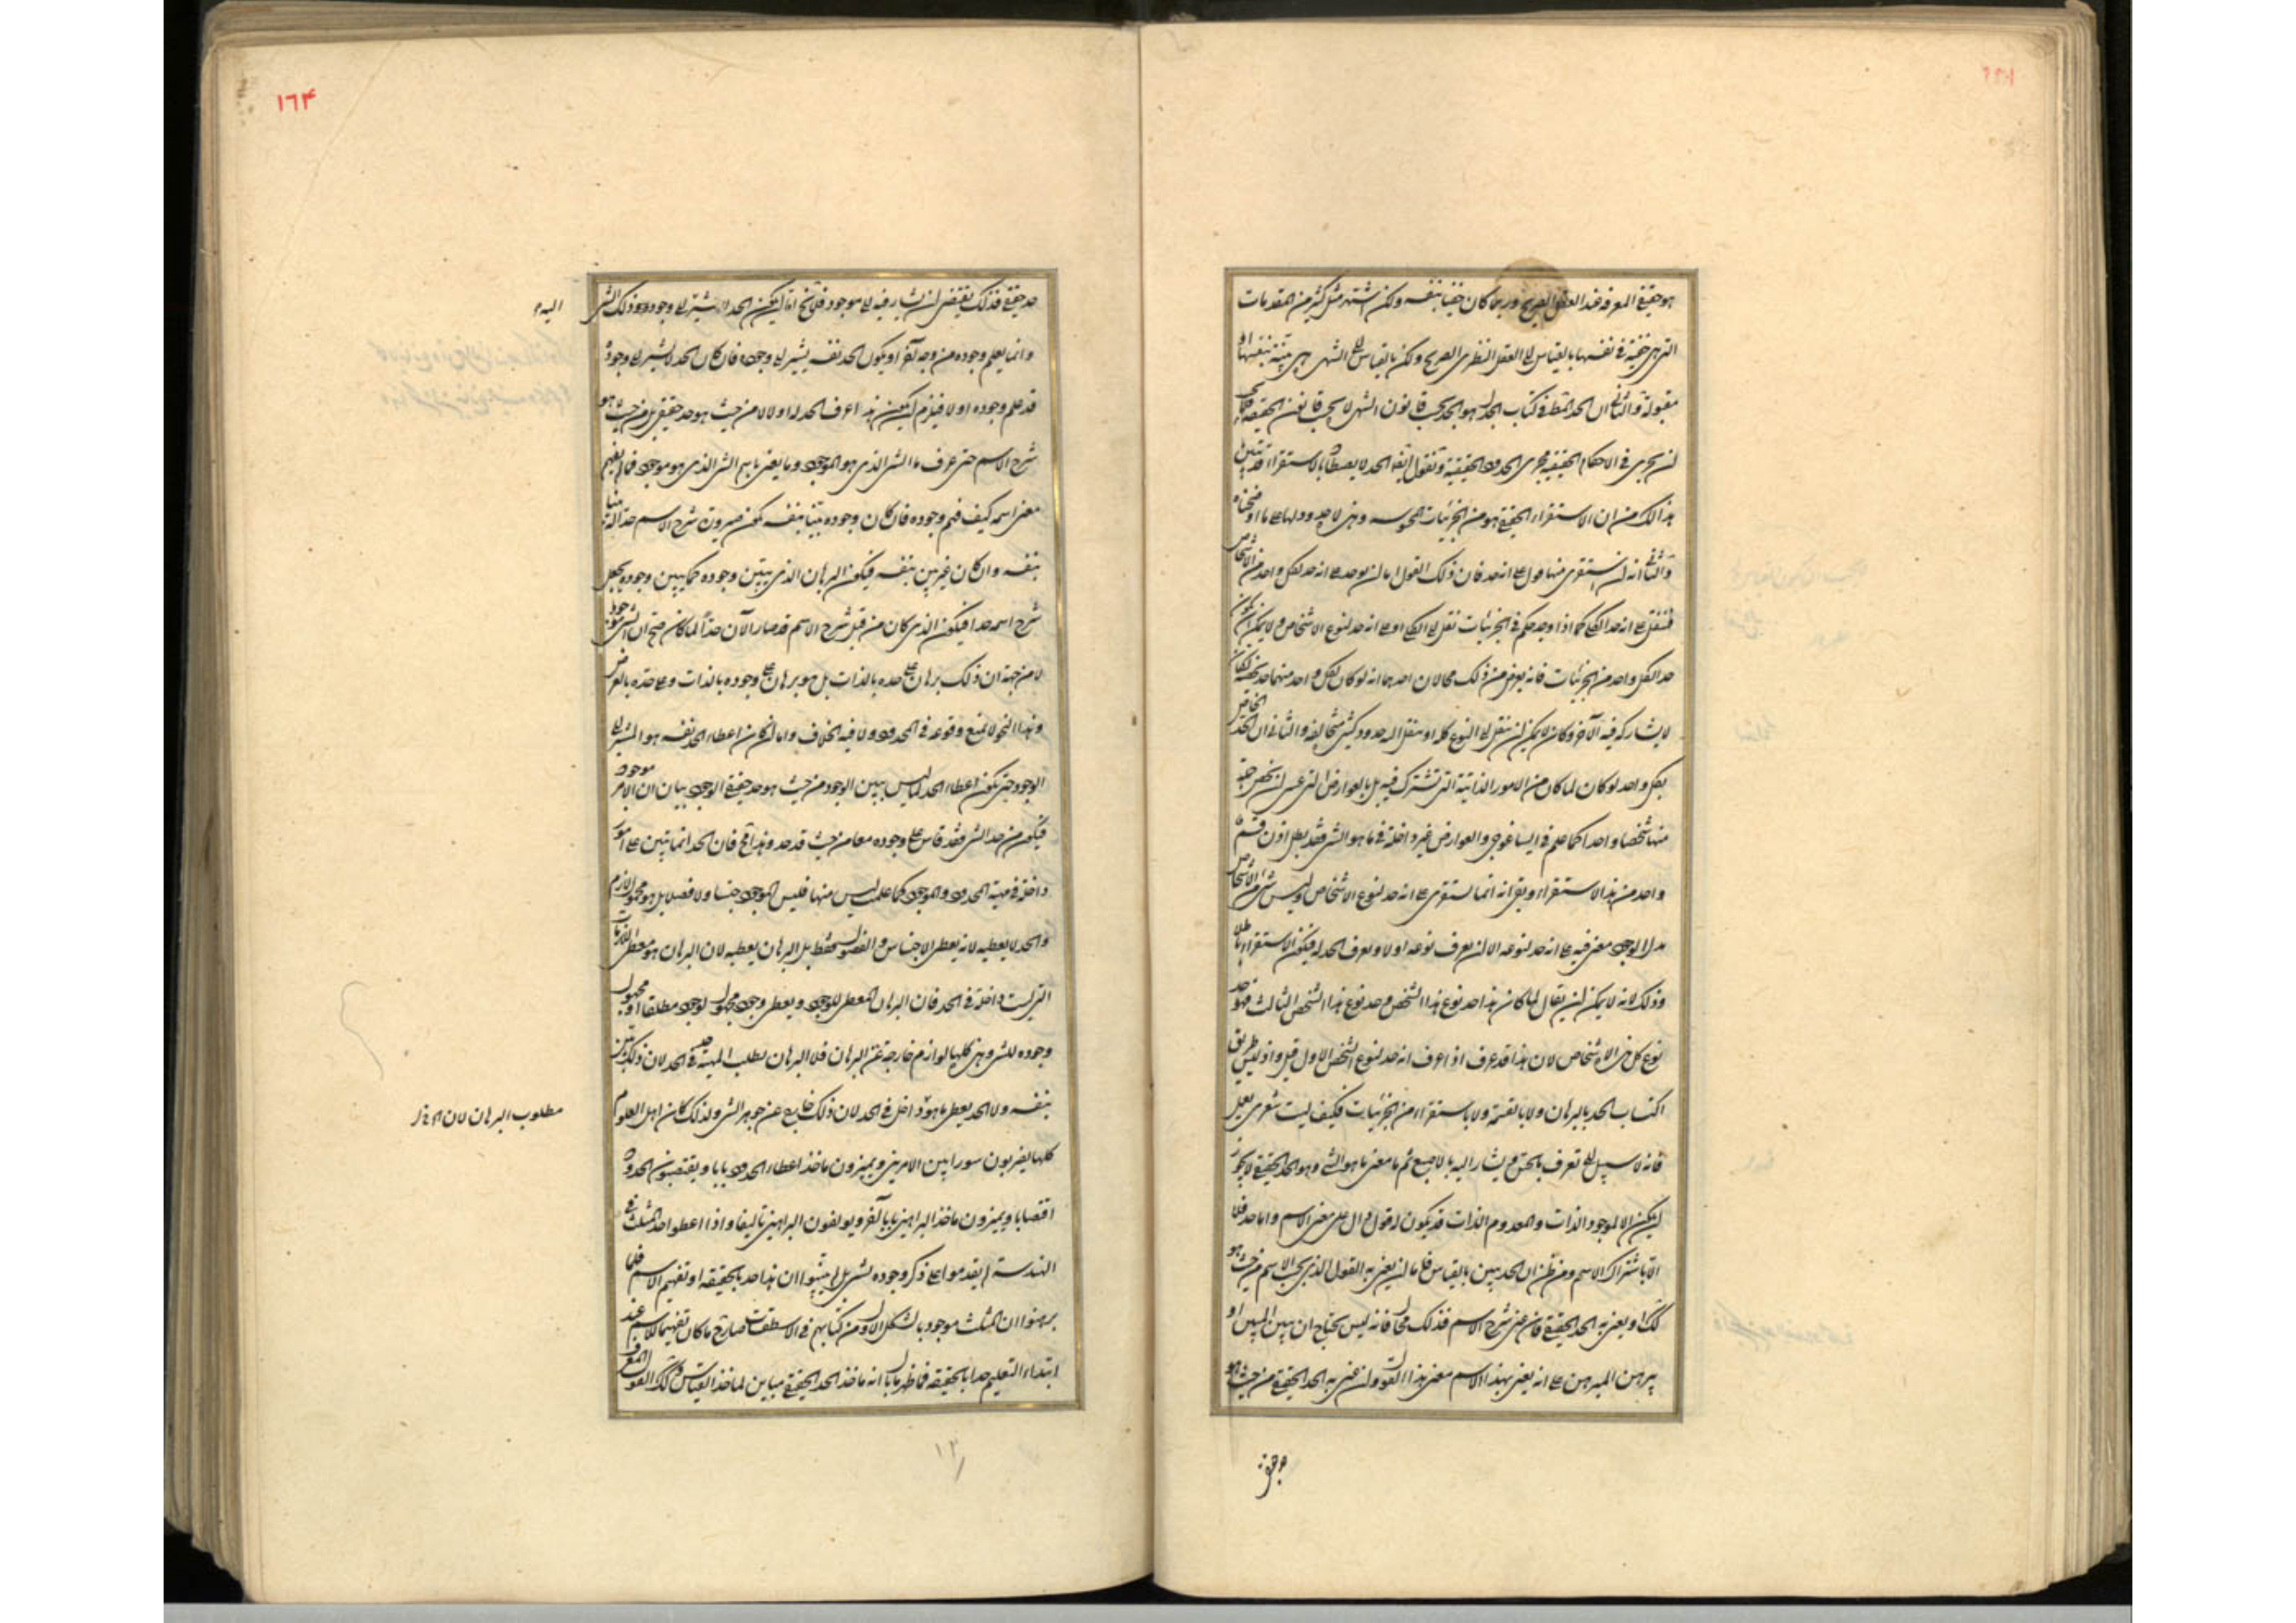 هو حقيقة المعرفة عند العقل الصريح وربما كان خفيا بنفسه ولكن اشتهر مثل كثير من المقدمات
التي هي خفية في نفسها بالقياس الى العقل النظري الصريح ولكن بالقياس الى الشهرة هي بينة بنفسها او
مقبولة والثاني ان الحد المعطى في كتاب الجدل هو الحد بحسب قانون الشهرة لا بحسب قانون الحقيقة
ان يجري في الاحكام الحقيقية مجرى الحدود الحقيقية ونقول ايضا الحد لا يعطى بالاستقراء قد تبين
هذا لك من ان الاستقراء الحقيقي هو من الجزئيات المحسوسة وهي لا حدود لها على ما اوضحناه
والثاني انه ان استقرى منها قول على انه حد فان ذلك القول اما ان يوجد على انه حد لكل واحد من الاشخاص
فتنقل على انه حد الكلي كما اذا وجد حكم في الجزئيات نقل الى الكلي او على انه حد لنوع الاشخاص ولا يمكن ان يكون
حدا لكل واحد من الجزئيات فانه يعرض من ذلك محالان احدهما انه لو كان لكل واحد منهما حد يخصه لكان
لا يشاركه فيه الآخر وكان لا يمكن ان ننقل الى النوع كله او ننقل اليه حدود كثيرة متخالفة والثاني ان الحد الخاص
بكل واحد لو كان لما كان من الامور الذاتية التي تشترك فيه بل بالعوارض التي عسى ان يخص جملة
منها شخصا واحدا كما علم في ايساغوجي والعوارض غير داخلة في ما هو الشيء فقد بطل اذن قسم
واحد من هذا الاستقراء وبقي انه انما يستقرى على انه حد لنوع الاشخاص وليس شيء من الاشخاص
بدل الوجود معنى فيه على انه حد لنوعه الا ان يعرف نوعه اولا ويعرف الحد له فيكون الاستقراء باطلا
وذلك لانه لا يمكن ان يقال لما كان هذا حد نوع هذا الشخص وحد نوع هذا الشخص الثالث فهو حد
نوع كل من الاشخاص لان هذا قد عرف اذ اعرف انه حد لنوع الشخص الاول قبل واذ ليس طريق
اكتساب الحد بالبرهان ولا بالقسمة ولا باستقراء من الجزئيات فكيف ليت شعري يعلم
فانه لا سبيل الى تعرف بالحس ويشار اليه بالاصبع ثم ما معنى ما هو الشيء وهو الحد الحقيقي لا يجوز
ان يكون الا لموجود الذات والمعدوم الذات قد يكون له قول دال على معنى الاسم واما حد فلا
الا باشتراك الاسم ومن ظن ان الحد يبين بالقياس فاما ان يعني به القول الذي بحسب الاسم من حيث هو
كذلك او يعني به الحد الحقيقي فان عنى شرح الاسم فذلك محال فانه ليس يحتاج ان يبين المبين او
يبرهن المبرهن على انه يعني بهذا الاسم معنى هذا القول وان عنى به الحد الحقيقي من حيث هو
حد حقيقي فذلك يقتضي ان يشار فيه الى موجود فلا يخ اما ان يكون الحد لا يشير الى وجوده وذلك الشيء
وانما يعلم وجوده من وجه آخر او يكون الحد نفسه يشير الى وجوده فان كان الحد لا يشير الى وجوده
قد علم وجوده اولا فيلزم ان يكون هذا اعرف الحد له اولا لا من حيث هو حد حقيقي بل من حيث هو
شرح الاسم حتى عرف ما الشيء الذي هو الموجود وما يعنى باسم الشيء الذي هو موجود فما لم يفهم
معنى اسمه كيف فهم وجوده فان كان وجوده بينا بنفسه يكون صيرورة شرح الاسم حدا له بينا
بنفسه وان كان غير بين بنفسه فيكون البرهان الذي يبين وجوده كما يبين وجوده يجعل
شرح اسمه حدا فيكون الذي كان من قبل شرح الاسم قد صار الآن حدا لما كان صح ان الشيء موجود
لا من جهة ان ذلك برهان على حده بالذات بل هو برهان على وجوده بالذات وعلى حده بالعرض
وهذا النحو لا نمنع وقوعه في الحدود ولا فيه الخلاف واما ان كان اعطاء الحد نفسه هو المشير الى
الوجود حتى يكون اعطاء الحد لما ليس يبين الوجود من حيث هو حد حقيقي الوجود بيان ان الامر موجود
فيكون من حد الشيء فقد قاس على وجوده معا من حيث قد حد وهذا مح فان الحد انما يبين على امور
داخلة في مهية المحدود والموجود كما علمت ليس منها فليس الموجود جنسا ولا فصلا بل هو محمول لازم
والحد لا يعطيه لانه يعطي الاجناس والفصول فقط بل البرهان يعطيه لان البرهان هو معطي اللازمات
التي ليست داخلة في الحد فان البرهان المعطي للوجود ويعطي وجود محمول لوجود مطلقا او محمول
وجوده للشيء وهي كلها لوازم خارجة عن البرهان فلا البرهان يطلب المهية في الحد لان ذلك بين
بنفسه ولا الحد يعطي ما هو داخل في الحد لان ذلك خارج عن جوهر الشيء ولذلك كان اهل العلوم
كلها يضربون سورا بين الامرين ويميزون ماخذ اعطاء الحدود بابا ويقتضبون الحدود
اقتضابا ويميزون ماخذ البراهين بابا آخر ويولفون البراهين تاليفا واذا اعطوا حد المثلث في
الهندسة لم يقدموا على ذكر وجوده لشيء بل لم يثبتوا ان هذا حد بالحقيقة او تفهيم الاسم فلما
برهنوا ان المثلث موجود بالشكل الاول من كتابهم في الاسطقسات صار ح ما كان تفهيما للاسم عند
ابتداء التعليم حدا بالحقيقة فاظهر ما بان انه ماخذ الحد الحقيقي مباين لماخذ القياس وكذلك القول المعرف
اليه
مطلوب البرهان لان
١٦٤
١٢